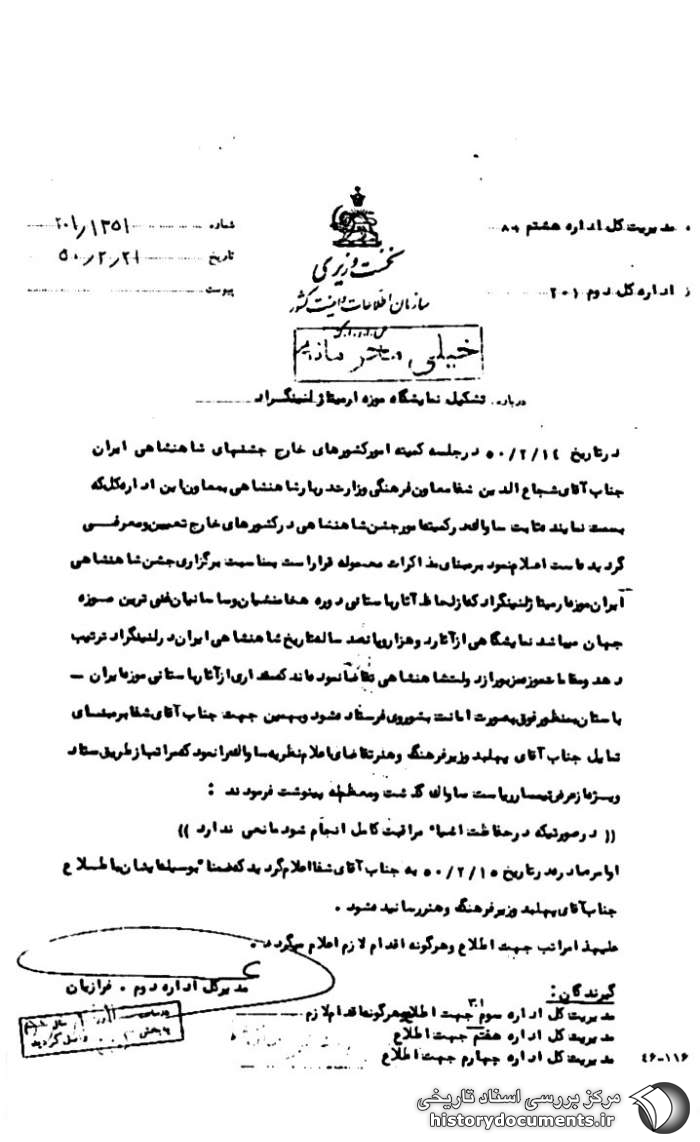 به مدیریت کل اداره هشتم ۸۰۰
از اداره کل دوم ۲۰۱
شماره ۲۰۱/۱۳۵۱
تاریخ ۵۰/۲/۲۱
پیوست
نخست وزیری
سازمان اطلاعات و امنیت کشور
س.ا.و.ا.ک
خیلی محرمانه
درباره تشکیل نمایشگاه موزه ارمیتاژ لنینگراد
درتاریخ ۵۰/۲/۱۴ درجلسه کمیته امورکشورهای خارج جشنهای شاهنشاهی ایران
جناب آقای شجاع الدین شفا معاون فرهنگی وزارت دربار شاهنشاهی بمعاون این اداره کل که
بسمت نماینده ثابت ساواک در کمیته امور جشن شاهنشاهی در کشورهای خارج تعیین و معرفی
گردیده است اعلام نمود بر مبنای مذاکرات معموله قرار است بمناسبت برگزاری جشن شاهنشاهی
ایران موزه ارمیتاژ لنینگراد که از لحاظ آثار باستانی دوره هخامنشیان و ساسانیان غنی ترین موزه
جهان میباشد نمایشگاهی از آثار دو هزار و پانصد ساله تاریخ شاهنشاهی ایران در لنینگراد ترتیب
دهد و مقامات موزه مزبور از دولت شاهنشاهی تقاضا نموده اند که مقداری از آثار باستانی موزه ایران –
باستان بمنظور فوق بصورت امانت بشوروی فرستاده شود و بهمین جهت جناب آقای شفا بر مبنای
تمایل جناب آقای پهلبد وزیر فرهنگ و هنر تقاضای اعلام نظریه ساواک را نمود که مراتب از طریق ستاد
ویژه از عرض تیمسار ریاست ساواک گذشت و معظم له پینوشت فرمودند :
(( در صورتیکه در حفاظت اشیاء مراقبت کامل انجام شود مانعی ندارد ))
اوامر صادره در تاریخ ۵۰/۲/۱۵ به جناب آقای شفا اعلام گردید که ضمنا" بوسیله ایشان باطلاع
جناب آقای پهلبد وزیر فرهنگ و هنر رسانیده شود .
علیهذا مراتب جهت اطلاع و هرگونه اقدام لازم اعلام میگردد .
مدیرکل اداره دوم . فرازیان
گیرندگان :
مدیریت کل اداره سوم جهت اطلاع و هرگونه اقدام لازم
مدیریت کل اداره هفتم جهت اطلاع
مدیریت کل اداره چهارم جهت اطلاع
۴۶-۱۱۶
مرکز بررسی اسناد تاریخی
historydocuments.ir